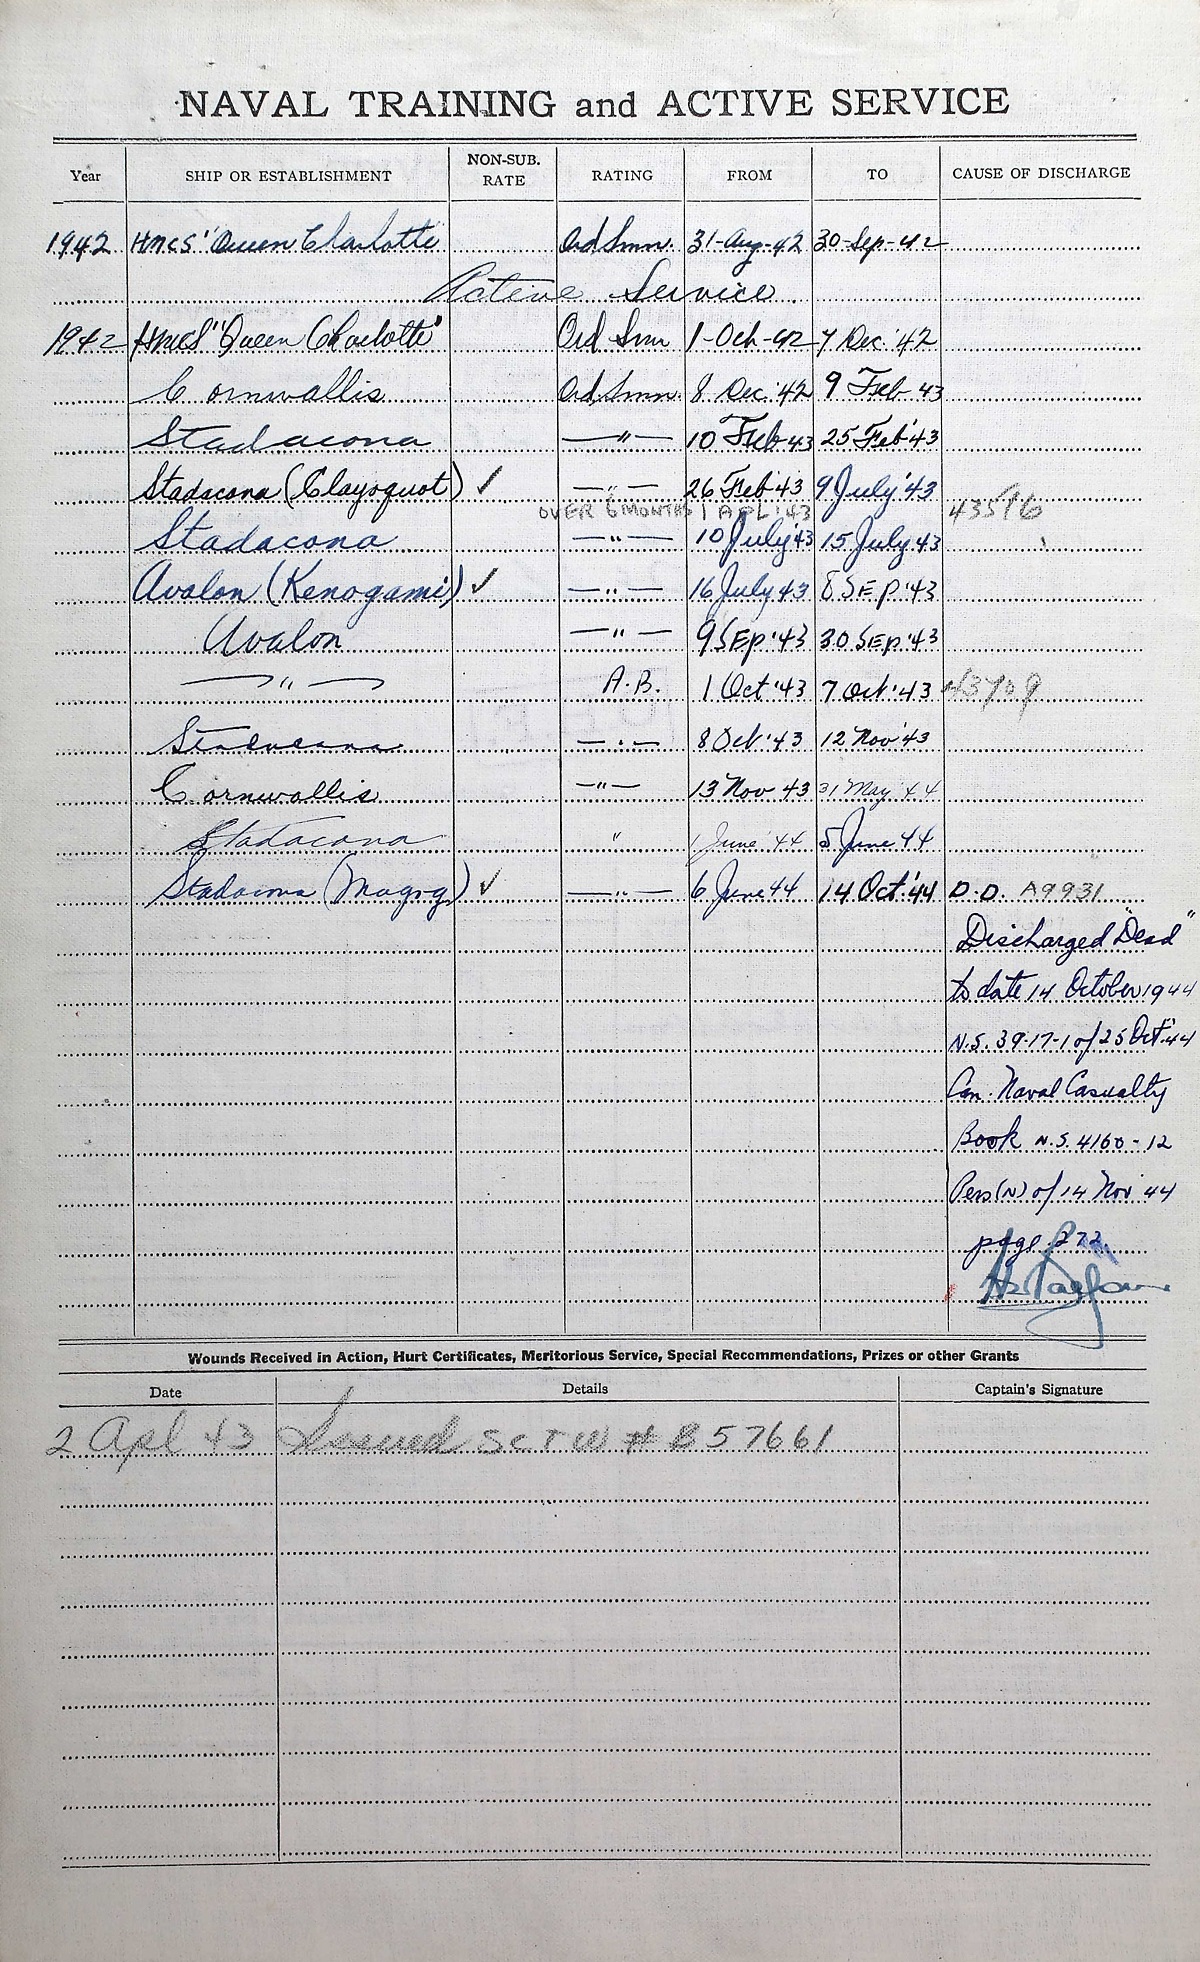 NAVAL TRAINING and ACTIVE SERVICE
Year SHIP OR ESTABLISHMENT NON-SUB. RATE RATING FROM TO CAUSE OF DISCHARGE
1942 HMCS "Queen Charlotte Ord Smn. 31-Aug-42 30-Sep-42
Active Service
1942 HMCS "Queen Charlotte" Ord Smn 1-Oct-42 7 Dec '42
Cornwallis Ord Smn. 8 Dec '42 9 Feb 43
Stadacona —"— 10 Feb 43 25 Feb '43
Stadacona (Clayoquot) ✓ —"— 26 Feb '43 9 July '43
OVER 6 MONTHS 1 APL '43 43516
Stadacona —"— 10 July '43 15 July 43
Avalon (Kenogami) ✓ —"— 16 July 43 8 SEP '43
Avalon —"— 9 SEP '43 30 SEP '43
—"— A.B. 1 Oct '43 7 Oct '43 43709
Stadacona —"— 8 Oct '43 12 Nov '43
Cornwallis —"— 13 Nov 43 31 May '44
Stadacona " 1 June '44 5 June 44
Stadacona (Magog) ✓ —"— 6 June 44 14 Oct '44 D.D. A9931
Discharged "Dead"
to date 14 October 1944
N.S. 39-17-1 of 25 Oct '44
Can. Naval Casualty
Book N.S. 4160-12
Pers (N) of 14 Nov 44
page 272
Wounds Received in Action, Hurt Certificates, Meritorious Service, Special Recommendations, Prizes or other Grants
Date Details Captain's Signature
2 Apl 43 Issued S C T W # B57661